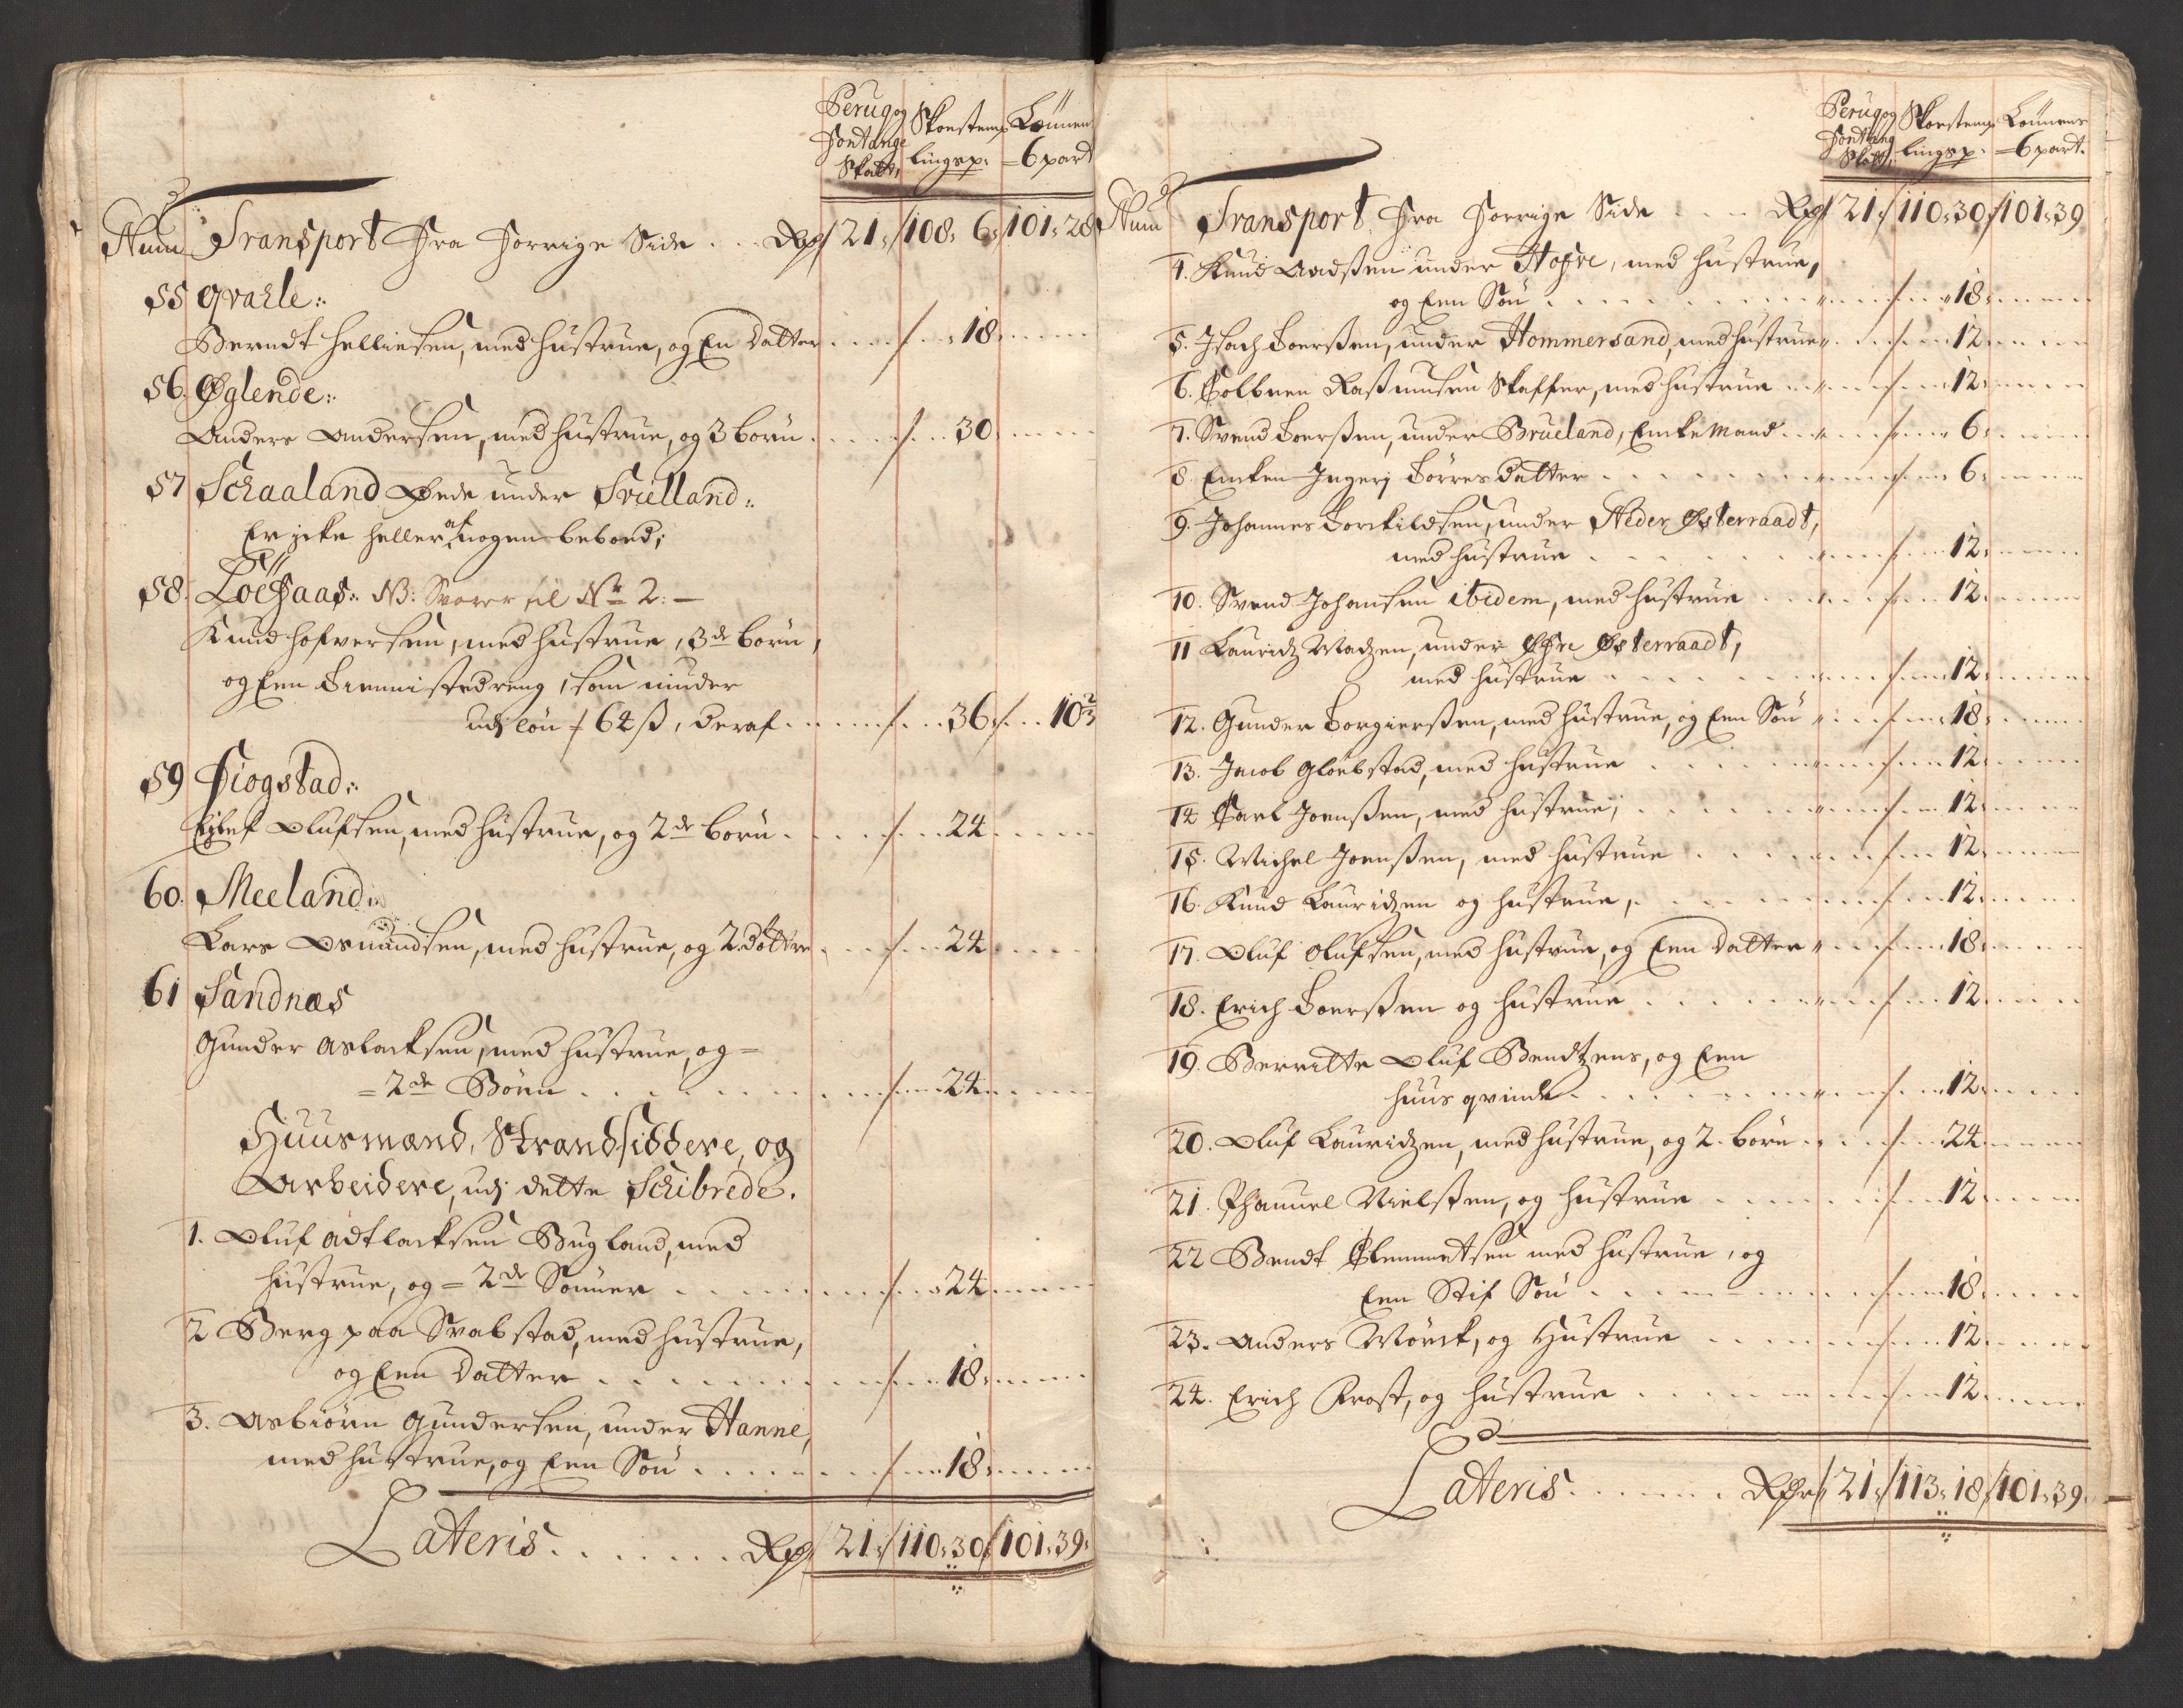 Perug og Skorstens Lönnens
Fontange lingsp. =6 part
Skatt,
Num Transport Fra Forrige Side . . . Rdr 21 / 108. 6 / 101. 28
55 Qvahle:
Berndt Helliesen, med hustrue, og En Datter . . . 18.
56. Øglende:
Anders Andersen, med hustrue, og 3 børn . . . 30.
57 Schaaland Øede under Svielland:
Er icke heller af nogen beboed;
58. NB: Svarer til No 2: —
Knud hofversen, med hustrue, 3de børn,
og Een Tiennistedreng, som niuder
udj lön / 64 ß, deraf . . . 36 / . . 10 2/3
59 Fiogstad:
Eilef Olufsen, med hustrue, og 2de børn . . . 24
60. Meeland:
Lars Osmundsen, med hustrue, og 2 döttre . . . 24
61 Sandnæs
Gunder Aslacksen, med hustrue, og =
= 2de Börn . . . 24
Huusmænd, Strandsiddere, og
Arbeidere, udj dette Schibrede.
1. Oluf Adtlacksen Bugland, med
hustrue, og = 2de Sönner . . . 24
2 Berg paa Svabstad, med hustrue,
og Een Datter . . . 18.
3. Asbiörn Gundersen, under Hanne,
med hustrue, og Een Sön . . . 18.
Lateris . . . . . . . Rdr 21 / 110. 30 / 101. 39.
Perug og Skorstens Lönnens
Fontang lingsp. =6 part.
Skatt,
Num Transport Fra Forrige Side . . . Rdr 21 / 110. 30 / 101. 39
4. Knud Aadßen under Hofve, med hustrue,
og Een Sön . . . 18.
5. Isach Toerßen, under Hommersand, med hustrue . . . 12.
6. Tolbren Raßmusen Skaffer, med hustrue . . . 12.
7. Svend Toerßen, under Brueland, Encke Mand . . . 6.
8. Encken Ingerj Börresdatter . . . 6.
9. Johannes Torckildsen, under Neder Østerraadt,
med hustrue . . . 12.
10. Svend Johansen ibidem, med hustrue . . . 12.
11 Lauridz Madzen, under Øfre Østerraadt,
med hustrue . . . 12.
12. Gunder Torgierßen, med hustrue, og Een Sön . . . 18.
13. Jacob Gloebstad, med hustrue . . . 12.
14 Carl Joenßen, med hustrue, . . . 12.
15. Michel Joenßen, med hustrue . . . 12.
16. Knud Lauridzen og hustrue, . . . 12.
17. Oluf Olufsen, med hustrue, og Een Datter . . . 18.
18. Erich Toerßen og hustrue . . . 12.
19. Berritte Oluf Bendtzens, og Een
huus qvinde . . . 12.
20. Oluf Lauridzen, med hustrue, og 2 børn . . . 24
21. Phanuel Nielßen, og hustrue . . . 12.
22 Bendt Clemmetsen med hustrue, og
Een Stif Sön . . . 18.
23. Anders Mörck, og Hustrue . . . 12.
24. Erich Krost, og hustrue . . . 12.
Lateris . . . . . . Rdr 21 / 113. 18 / 101. 39.